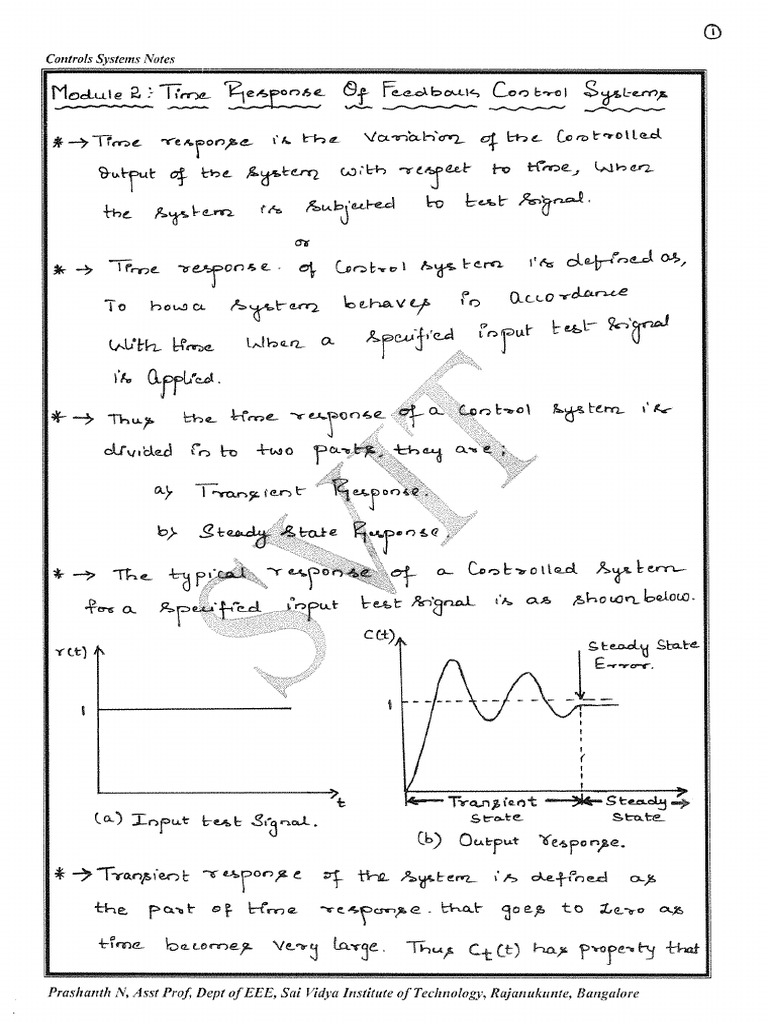 1
Controls Systems Notes
Module 2: Time Response Of Feedback Control Systems
* → Time response is the Variation of the Controlled
Output of the System with respect to time, When
the System is Subjected to test Signal.
or
* → Time response. of Control System is defined as,
To how a System behaves in accordance
With time When a Specified input test Signal
is Applied.
* → Thus the time response of a Control System is
divided in to two parts, they are;
a) Transient Response.
b) Steady State Response.
* → The typical response of a Controlled System
for a Specified input test Signal is as shown below.
r(t)
1
t
(a) Input test Signal.
C(t)
1
Steady State
Error.
Transient
State
Steady
State
(b) Output response.
* → Transient response of the System is defined as
the part of time response. that goes to Zero as
time becomes Very large. Thus Ct(t) has property that
SVIT
Prashanth N, Asst Prof, Dept of EEE, Sai Vidya Institute of Technology, Rajanukunte, Bangalore